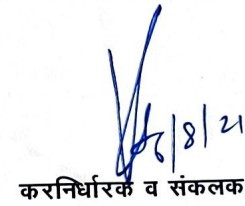 6/8/21
करनिर्धारक व संकलक